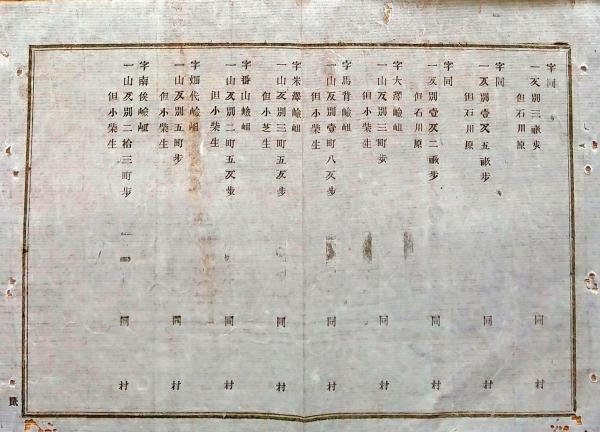 字同
一反別三畝歩 同村
但石川原
字同
一反別壹反五畝歩 同村
但石川原
字同
一反別壹反二畝歩 同村
但石川原
字大澤嶮岨
一山反別三町歩 同村
但小柴生
字馬背嶮岨
一山反別壹町八反歩 同村
但小柴生
字米澤嶮岨
一山反別三町五反歩 同村
但小芝生
字番山嶮岨
一山反別二町五反歩 同村
但小柴生
字畑代嶮岨
一山反別五町歩 同村
但小柴生
字南俟嶮岨
一山反別二拾三町歩 同村
但小柴生